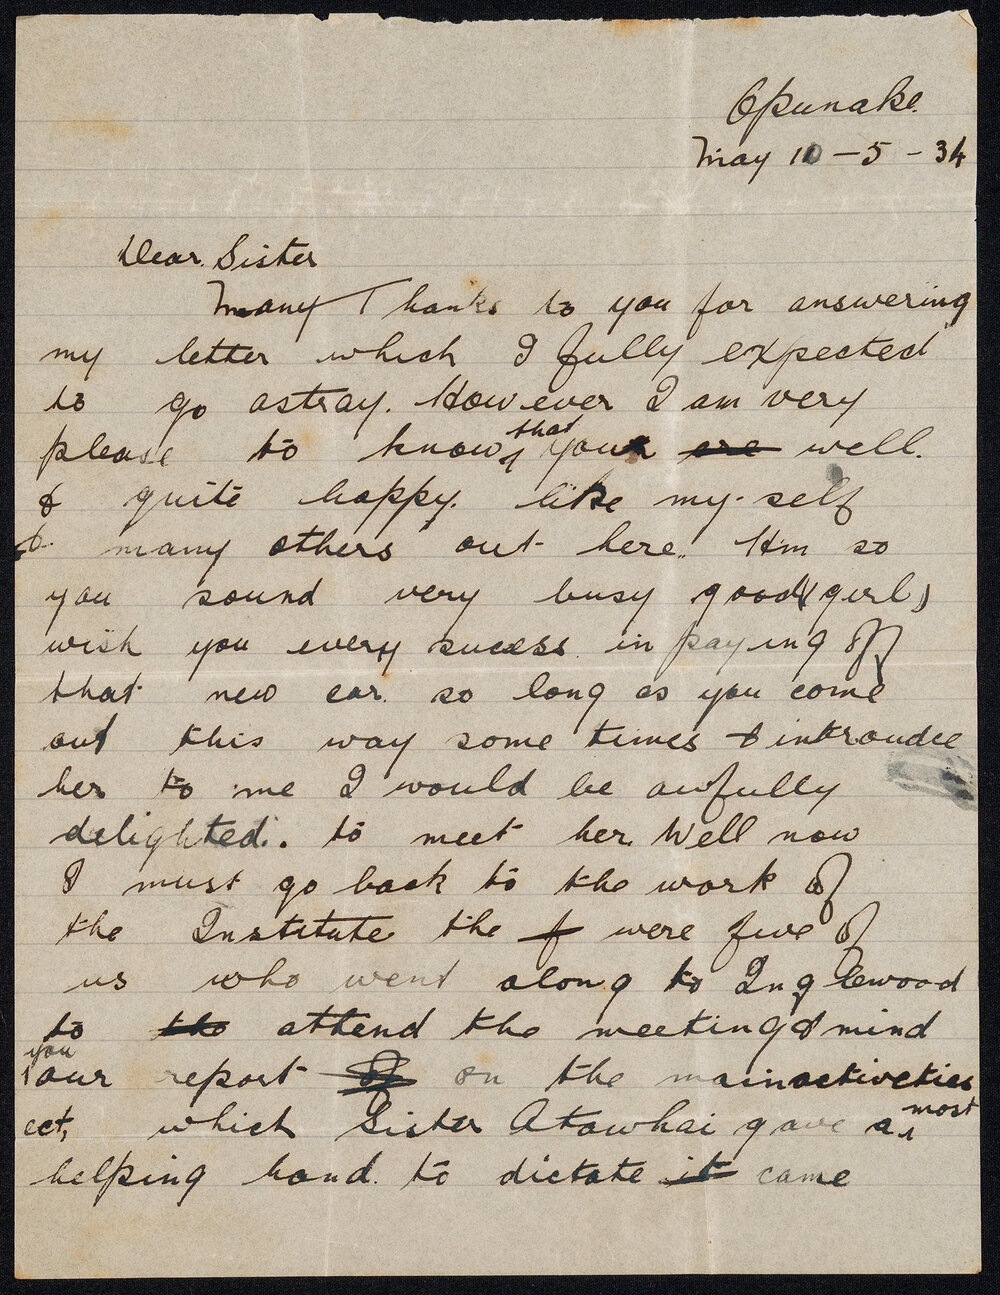 Opunake.
May 10 - 5 - 34
Dear. Sister
Many Thanks to you for answering
my letter which I fully expected
to go astray. However I am very
please to know that your ~~are~~ well.
& quite happy. like my-self
&. many others out here.. Hm so
you sound very busy good (girl)
wish you every sucess in paying off
that new car. so long as you come
out this way some times & introudce
her to me I would be awfully
delighted.. to meet her. Well now
I must go back to the work of
the Institute the ~~f~~ were five of
us who went along to Inglewood
to ~~the~~ attend the meeting & mind
you our report ~~of~~ on the main activeties
ect, which Sister Atawhai gave a most
helping hand. to dictate ~~it~~ came